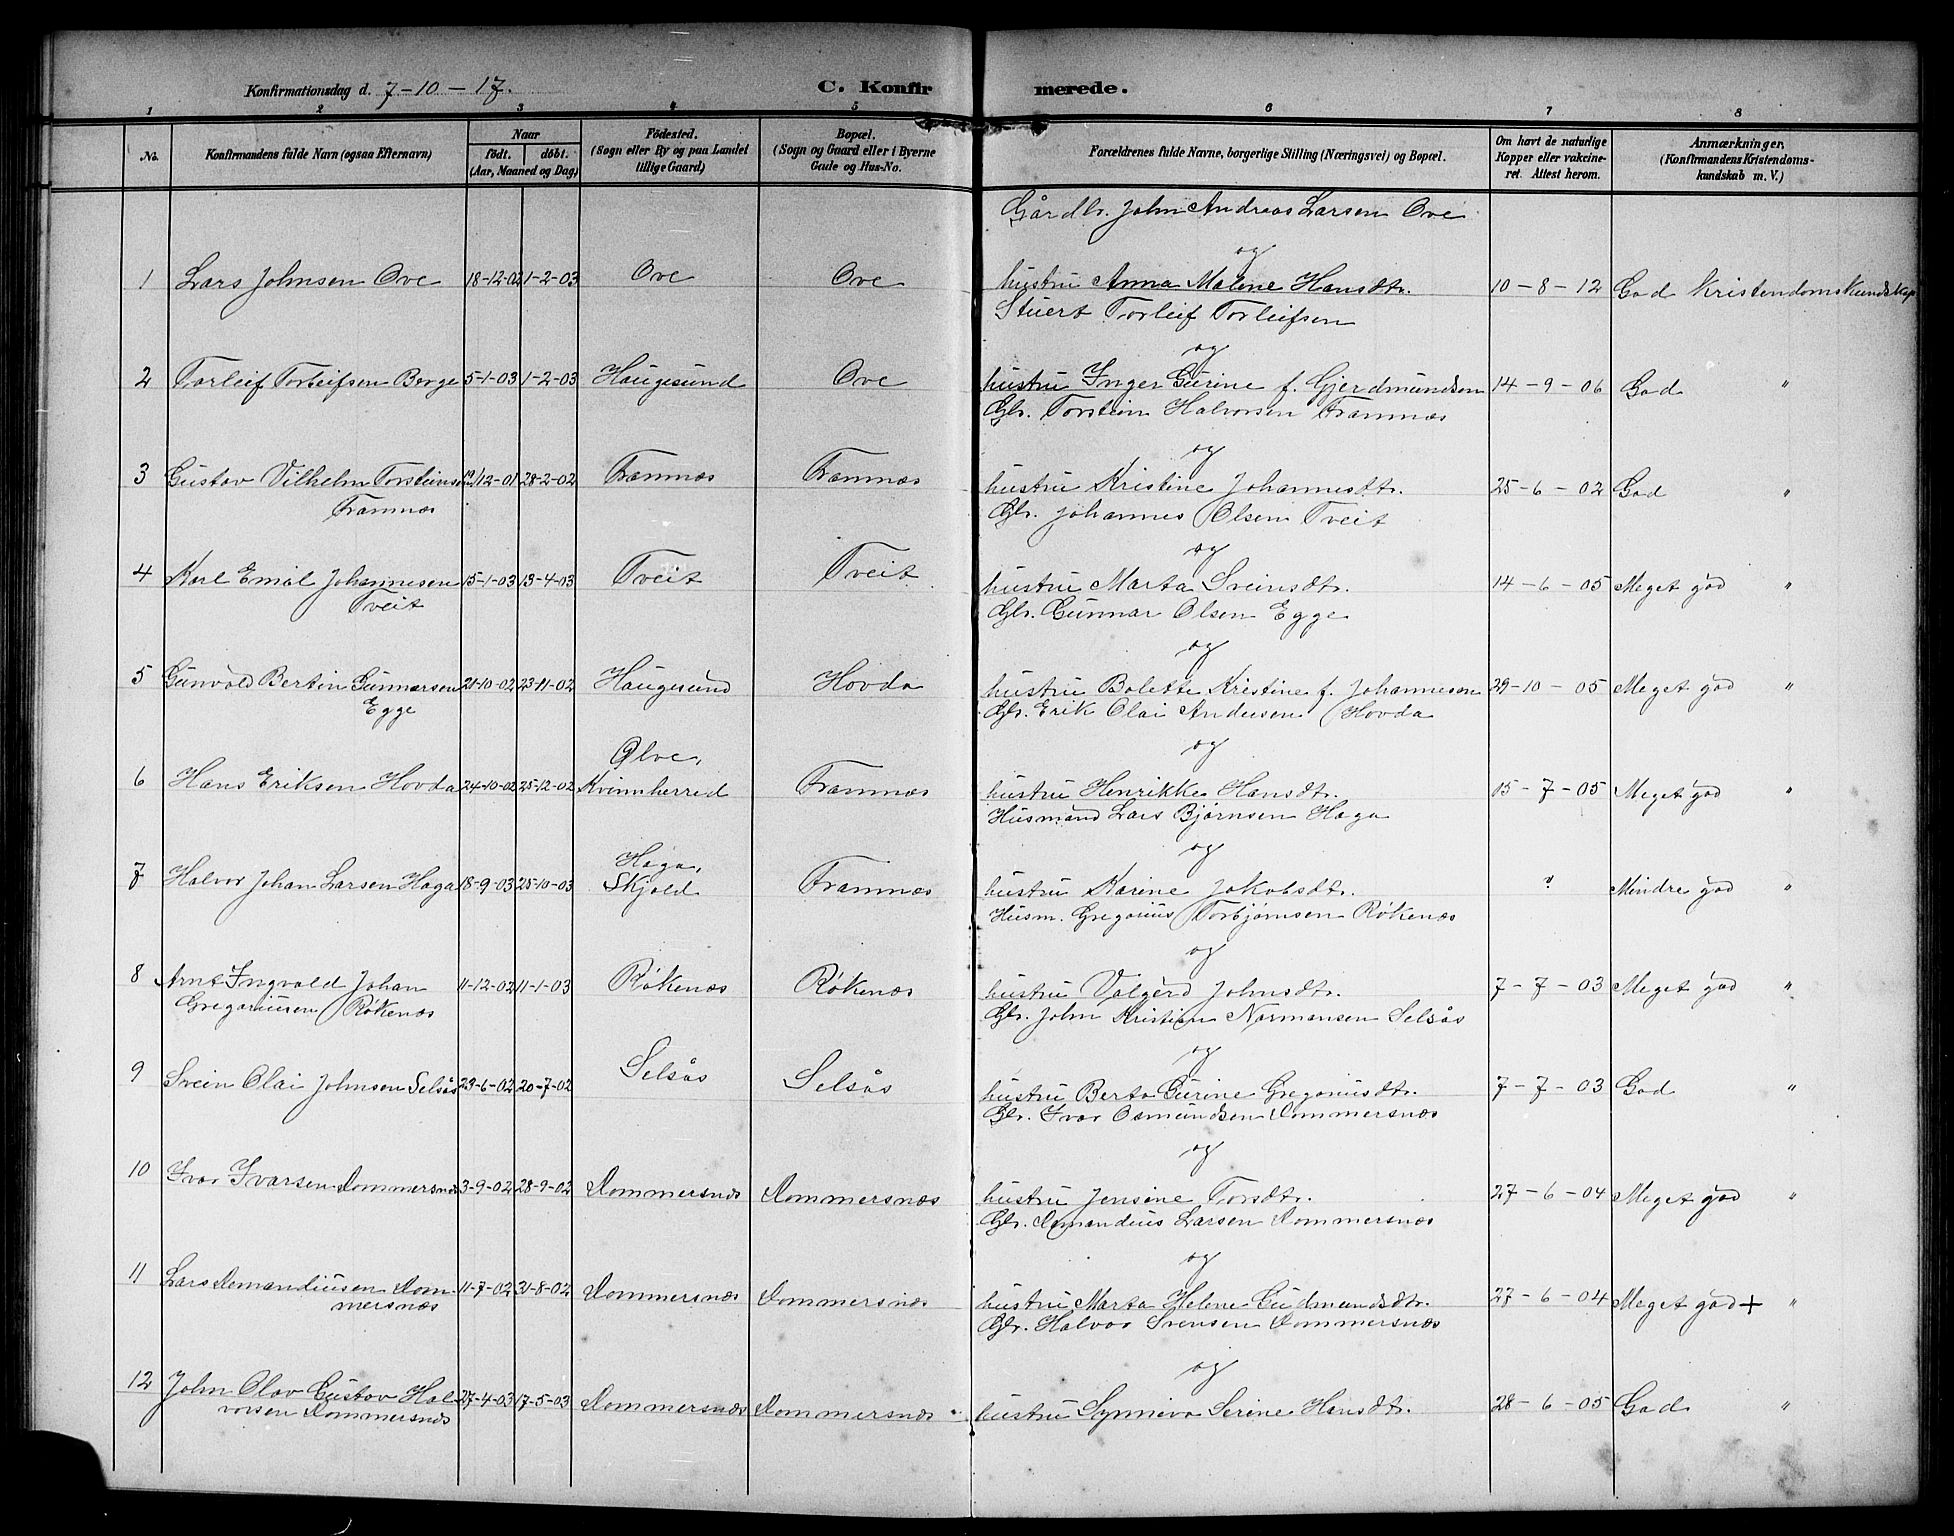 Konfirmationsdag d. 7-10-17. C. Konfirmerede.
1 2 3 4 5 6 7 8
No. Konfirmandens fulde Navn (ogsaa Efternavn) Naar født. døbt. (Aar, Maaned og Dag) Fødested. (Sogn eller By og paa Landet tillige Gaard) Bopæl. (Sogn og Gaard eller i Byerne Gade og Hus-No. Forældrenes fulde Navne, borgerlige Stilling (Næringsvei) og Bopæl. Om havt de naturlige Kopper eller vakcineret. Attest herom. Anmærkninger, (Konfirmandens Kristendomskundskab m. V.)
Gårdbr. John Andreas Larsen Ove
og
1 Lars Johnsen Ove 18-12-02 1-2-03 Ove Ove hustru Anna Malene Hansdtr. 10-8-12 God Kristendomskundskap
Stuert Torleif Torleifsen
og
2 Torleif Torleifsen Berge 5-1-03 1-2-03 Haugesund Ove hustru Inger Gurine f. Gjerdmundsen 14-9-06 God "
Gbr. Torstein Halvorsen Framnæs
og
3 Gustav Vilhelm Torsteinsen 19/12-01 28-2-02 Framnæs Framnæs hustru Kristine Johannesdtr. 25-6-02 God "
Framnæs
Gbr. Johannes Olsen Tveit
og
4 Karl Emil Johannesen 15-1-03 13-4-03 Tveit Tveit hustru Marta Sveinsdtr. 14-6-05 Meget god "
Tveit
Gbr. Gunnar Olsen Egge
og
5 Gunvald Bertin Gunnarsen 21-10-02 23-11-02 Haugesund Hovda hustru Bolette Kristine f. Johannesen 29-10-05 Meget god "
Egge
Gbr. Erik Olai Andersen Hovda
Ølve,
og
6 Hans Eriksen Hovda 24-10-02 25-12-02 Kvinnherred Framnæs hustru Henrikke Hansdtr. 15-7-05 Meget god "
Husmand Lars Bjørnsen Haga
og
Haga,
7 Halvor Johan Larsen Haga 18-9-03 25-10-03 Skjold Framnæs hustru Karine Jakobsdtr. ? Mindre god "
Husm. Gregorius Torbjørnsen Røkenæs
og
8 Arnt Ingvald Johan 11-12-02 11-1-03 Røkenæs Røkenæs hustru Valgerd Johnsdtr. 7-7-03 Meget god "
Gregoriusen Røkenæs
Gbr. John Kristian Normansen Selsås
og
9 Svein Olai Johnsen Selsås 23-6-02 20-7-02 Selsås Selsås hustru Berta Gurine Gregoriusdtr. 7-7-03 God "
Gbr. Ivar Osmundsen Dommersnæs
og
10 Ivar Ivarsen Dommersnæs 3-9-02 28-9-02 Dommersnæs Dommersnæs hustru Jensine Torsdtr. 27-6-04 Meget god "
Gbr. Amandius Larsen Dommersnæs
og
11 Lars Amandiusen Dom- 11-7-02 31-8-02 Dommersnæs Dommersnæs hustru Marta Helene Gudmundsdtr. 27-6-04 Meget god + "
mersnæs
Gbr. Halvor Svensen Dommersnæs
og
12 John Olav Gustav Hal- 27-4-03 17-5-03 Dommersnæs Dommersnæs hustru Synneva Serine Hansdtr. 28-6-05 God "
vorsen Dommersnæs